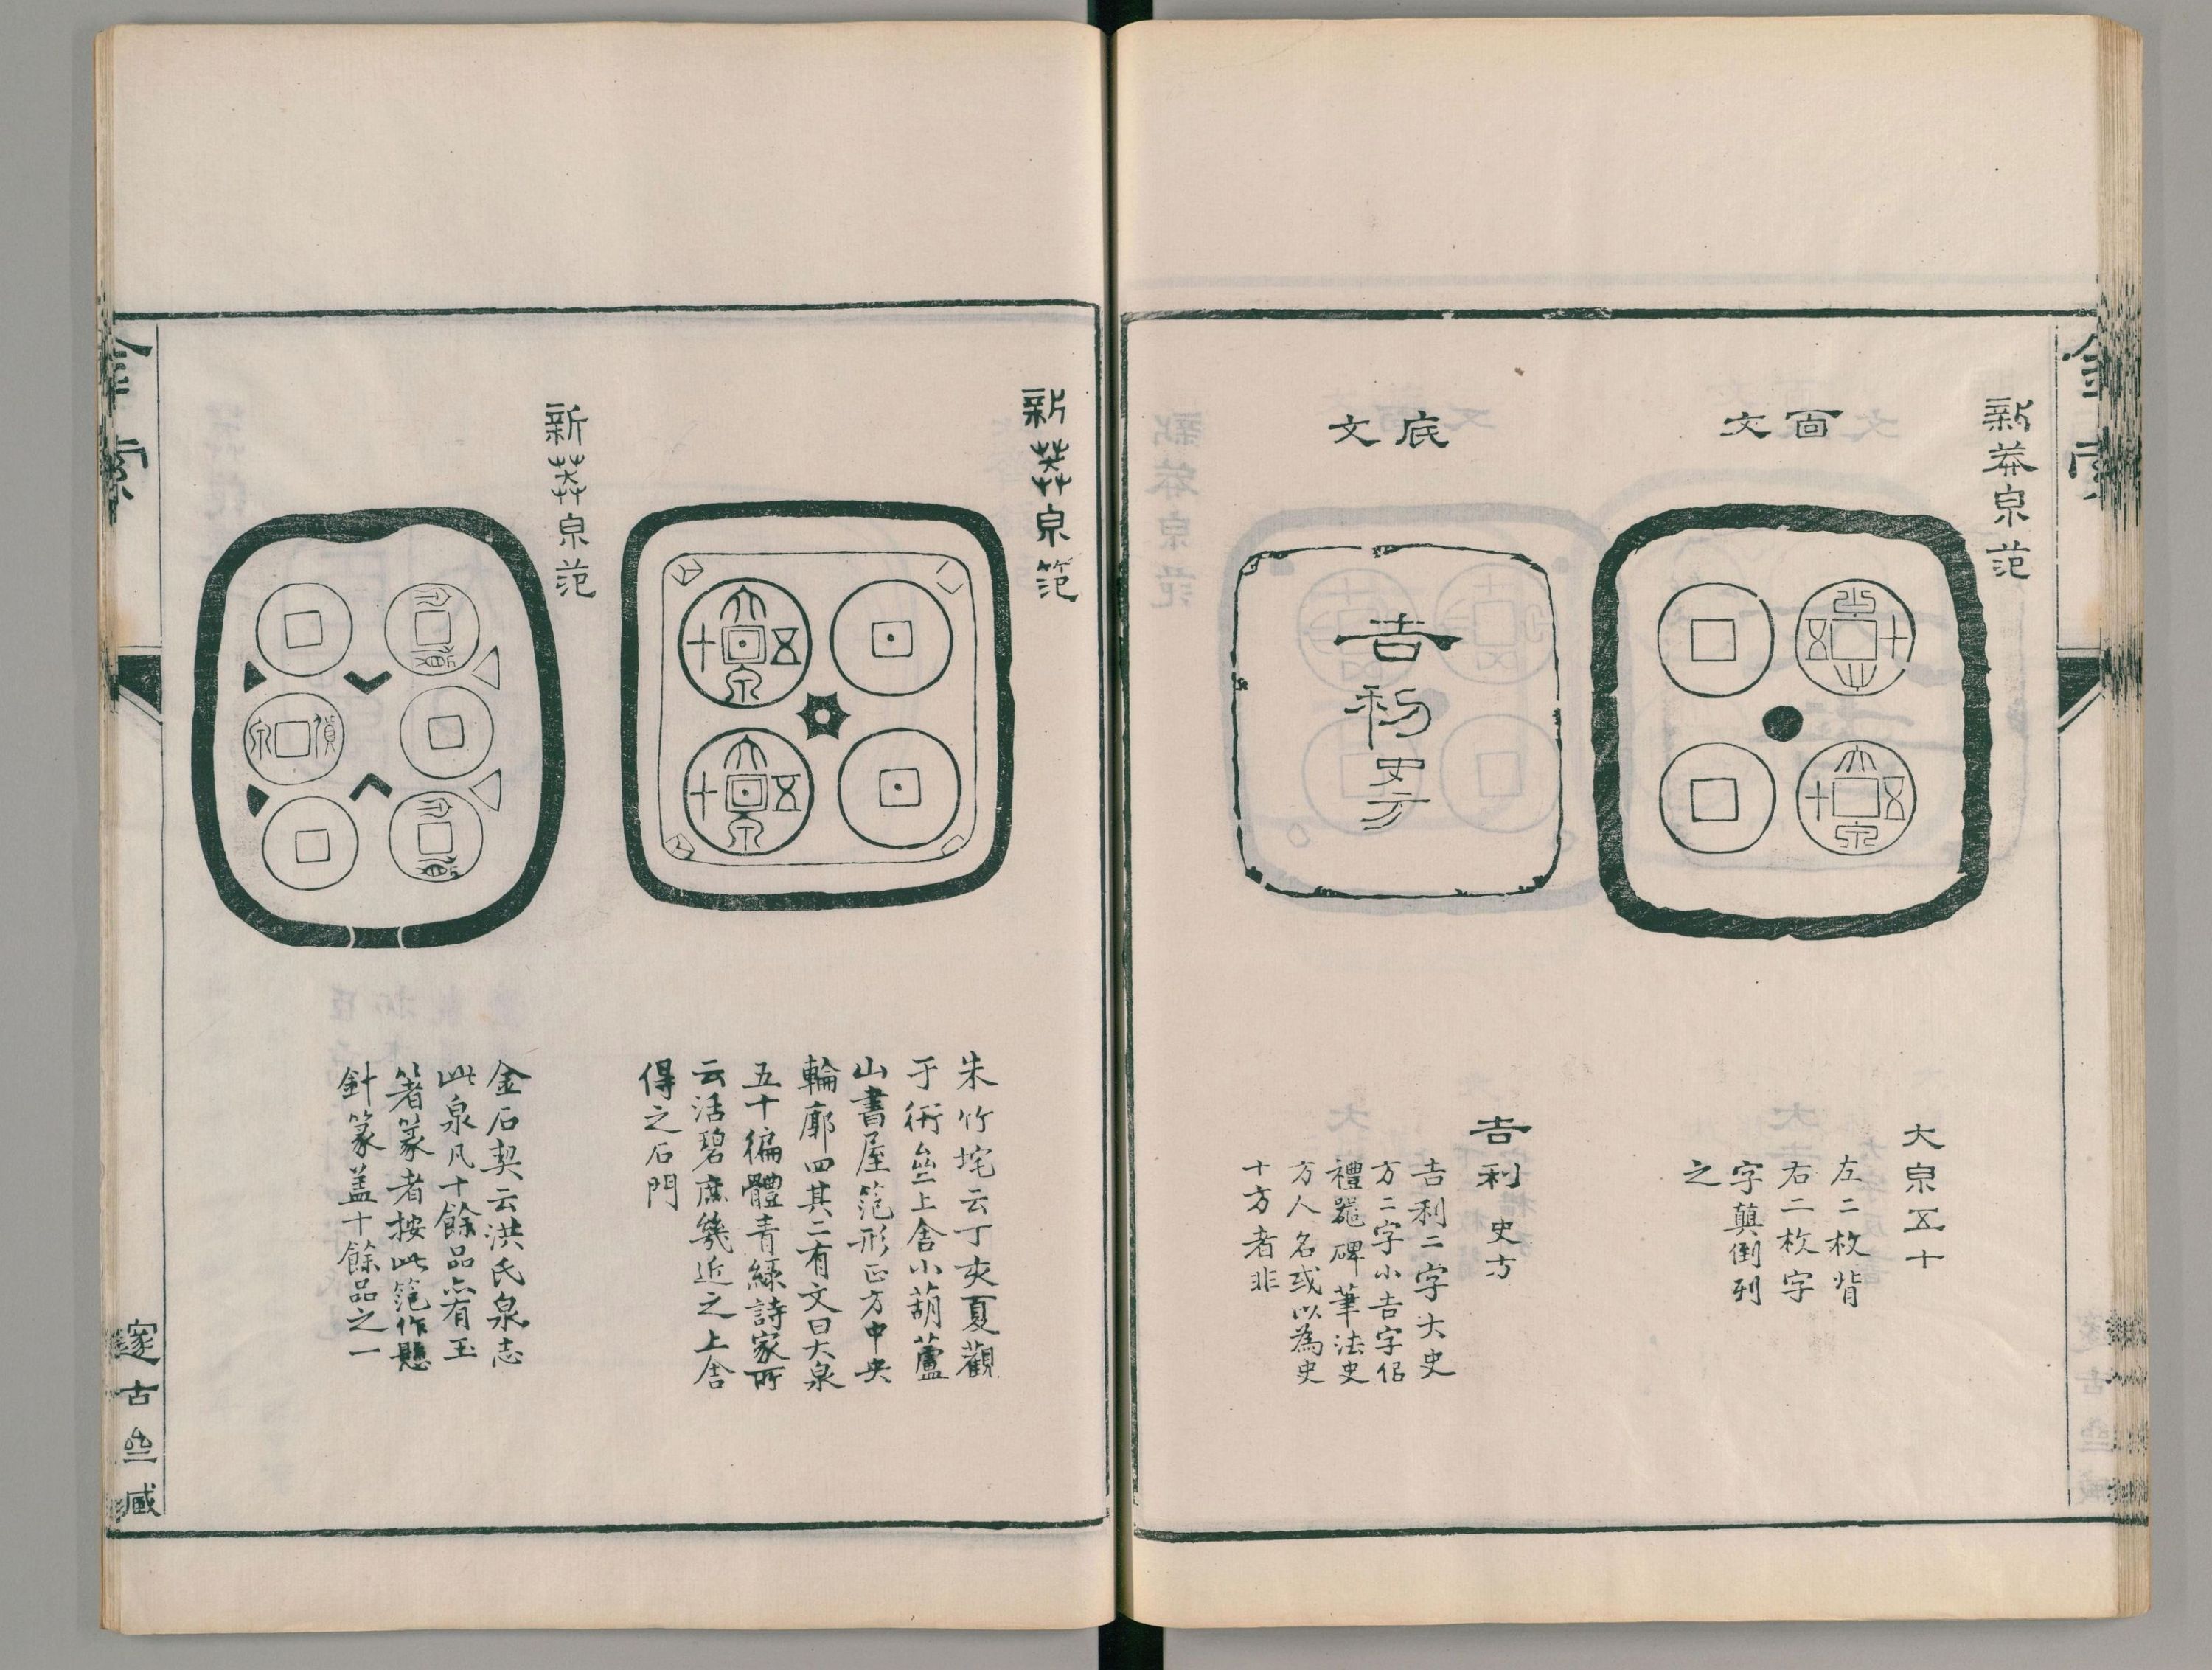 金索
新莽泉范
面文
大泉五十
大泉五十
底文
吉利
史方
大泉五十
左二枚背
右二枚字
字顛倒列
之
吉利 史方
吉利二字大史
方二字小吉字侣
禮器碑筆法史
方人名或以為史
十方者非
新莽泉笵
大泉五十
大泉五十
朱竹垞云丁亥夏觀
于衎齋上舍小葫蘆
山書屋笵形正方中央
輪廓四其二有文曰大泉
五十徧體青綠詩家所
云活碧庶幾近之上舍
得之石門
新莽泉范
貨泉
金石契云洪氏泉志
此泉凡十餘品亦有玉
箸篆者按此笵作懸
針篆蓋十餘品之一
金索
邃古齋藏